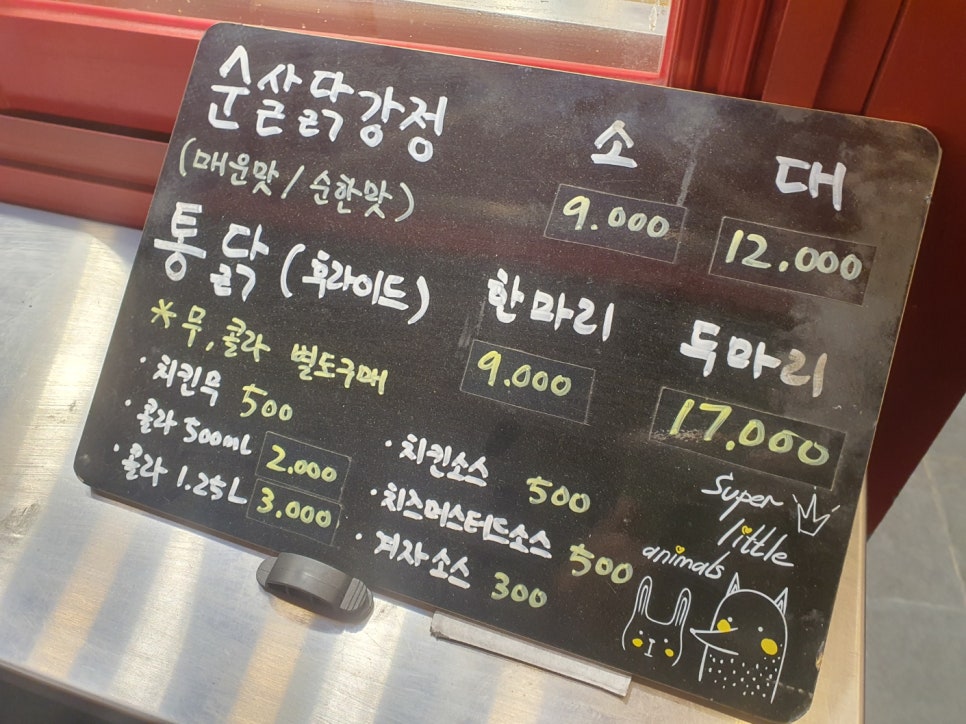 순살닭강정 소 대
(매운맛/순한맛) 9.000 12.000
통닭(후라이드) 한마리 두마리
*무,콜라 별도구매 9.000 17.000
·치킨무 500
·콜라 500mL 2.000
·콜라 1.25L 3.000
·치킨소스 500
·치즈머스터드소스 500
·겨자소스 300
Super
little
animals